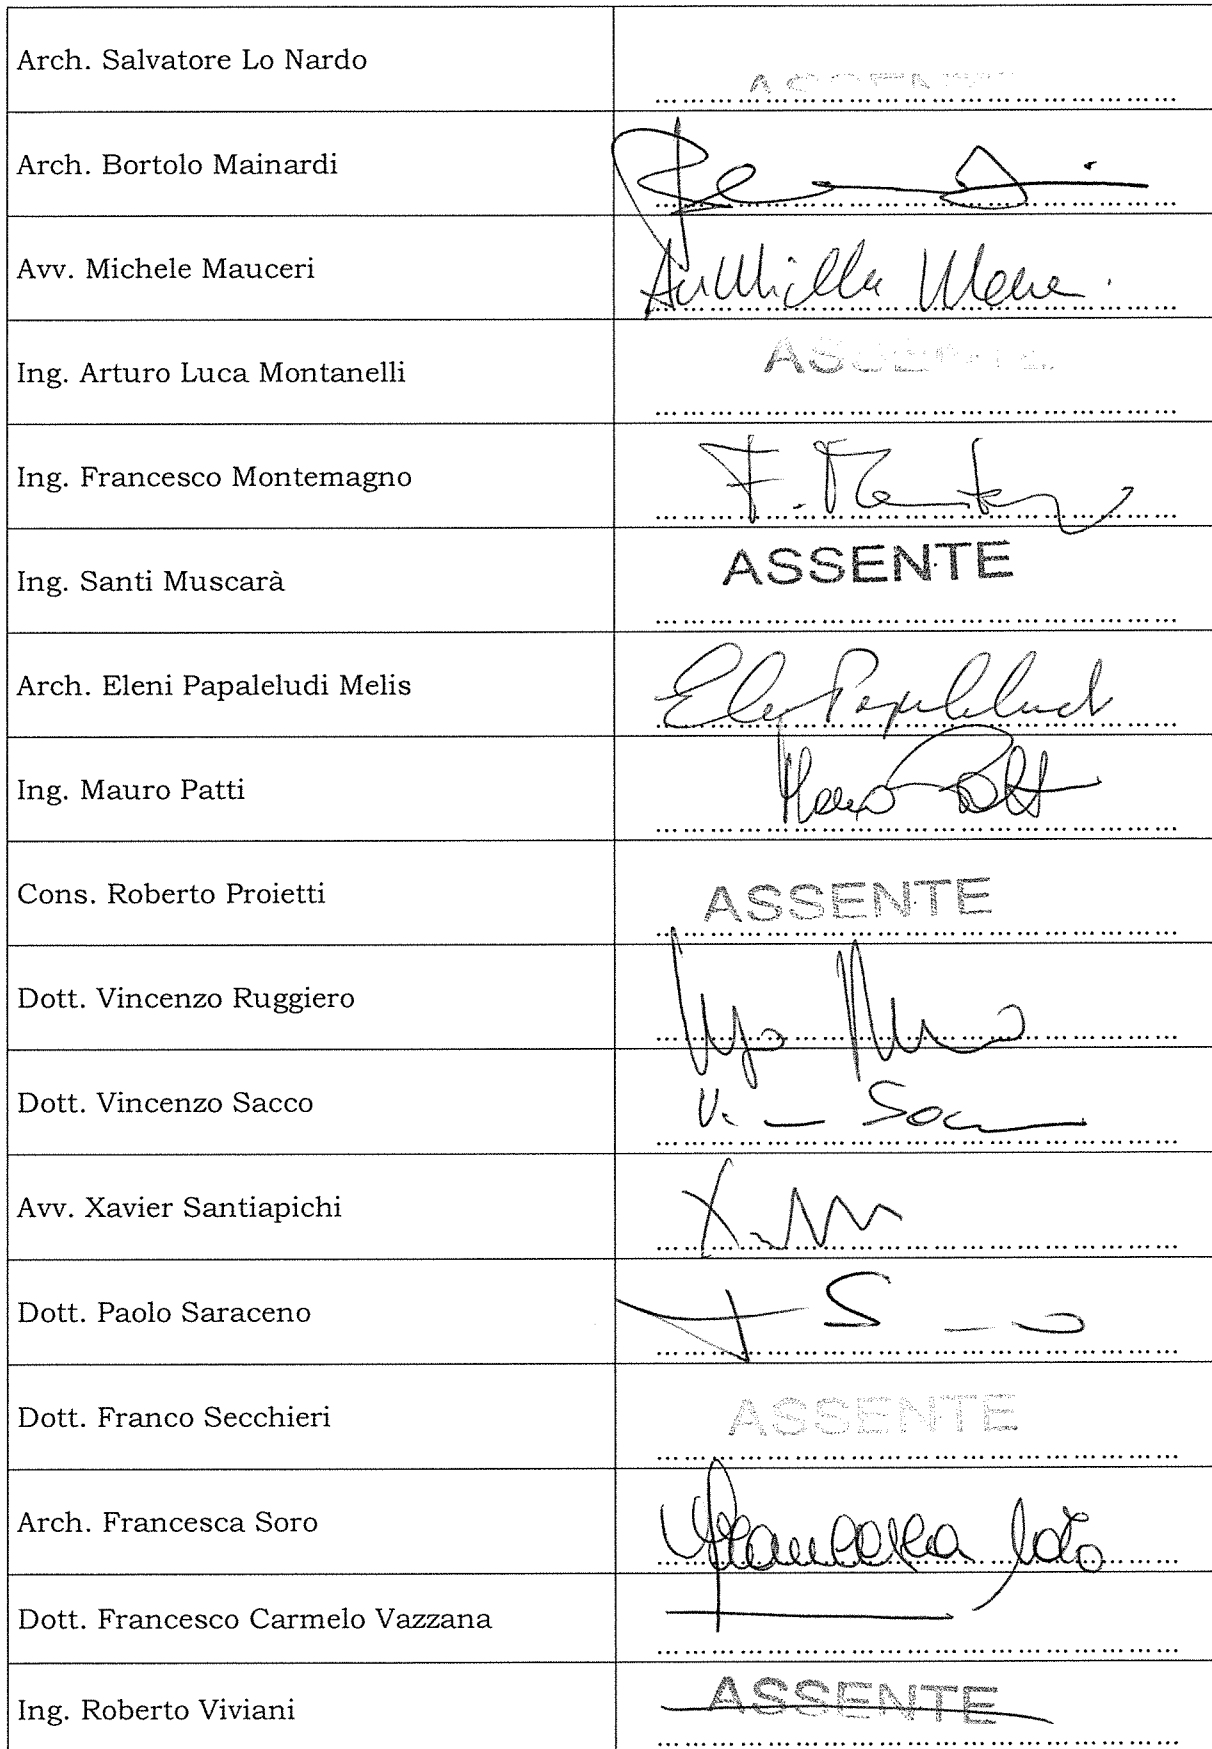 Arch. Salvatore Lo Nardo
Arch. Bortolo Mainardi
Avv. Michele Mauceri
Ing. Arturo Luca Montanelli
ASSENTE
Ing. Francesco Montemagno
Ing. Santi Muscarà
ASSENTE
Arch. Eleni Papaleludi Melis
Ing. Mauro Patti
Cons. Roberto Proietti
ASSENTE
Dott. Vincenzo Ruggiero
Dott. Vincenzo Sacco
Avv. Xavier Santiapichi
Dott. Paolo Saraceno
Dott. Franco Secchieri
ASSENTE
Arch. Francesca Soro
Francesca Soro
Dott. Francesco Carmelo Vazzana
Ing. Roberto Viviani
ASSENTE